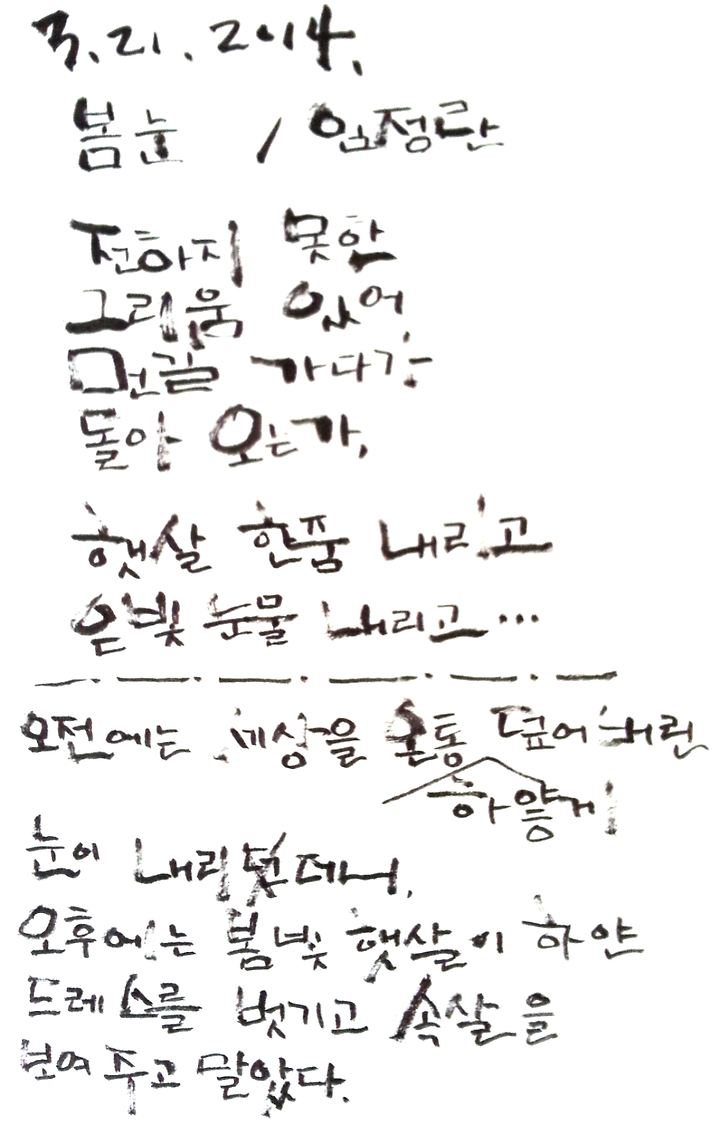 3. 21. 2014.
봄눈 / 임정란
전하지 못한
그리움 있어
먼길 가다가
돌아 오는가,
햇살 한품 내리고
은빛 눈물 내리고...
오전에는 세상을 온통 덮어버린
하얗게
눈이 내리던데니,
오후에는 봄빛 햇살이 하얀
드레스를 벗기고 속살을
보여 주고 말았다.